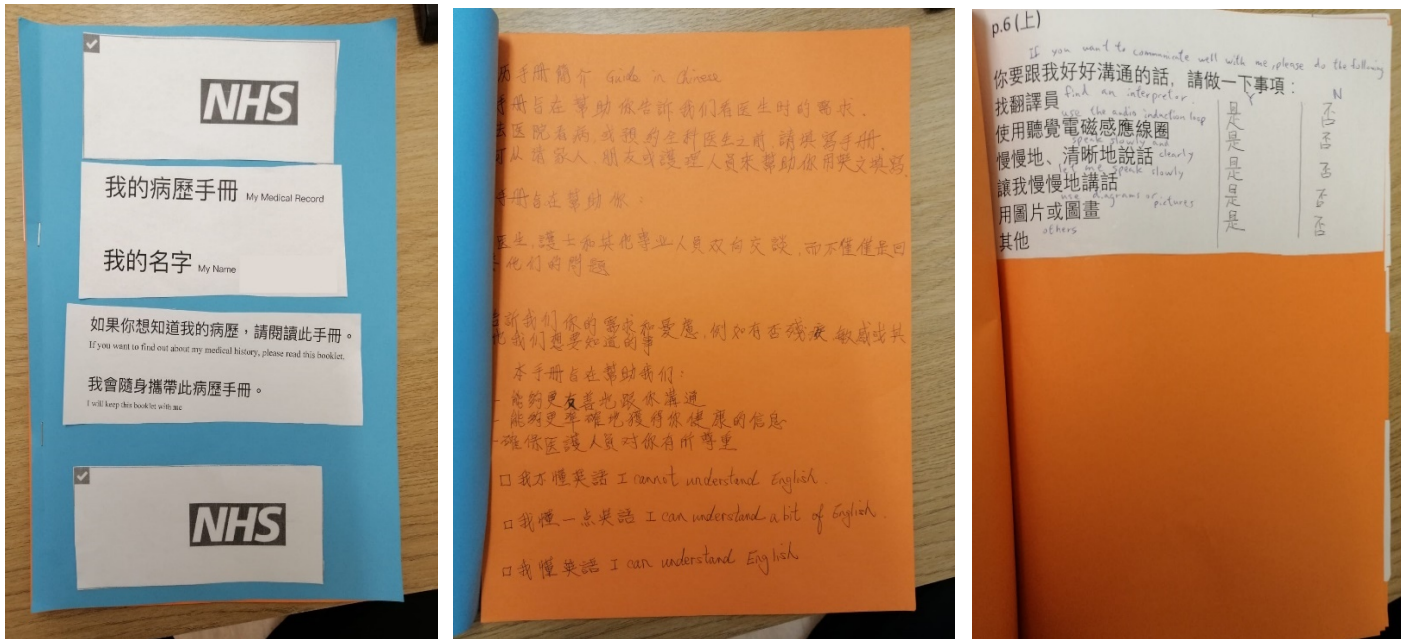 NHS
我的病歷手冊 My Medical Record
我的名字 My Name
如果你想知道我的病歷，請閱讀此手冊。
If you want to find out about my medical history, please read this booklet.
我會隨身攜帶此病歷手冊。
I will keep this booklet with me
NHS
历手冊簡介 Guide in Chinese
手冊旨在幫助你告訴我们看医生时的需求.
去医院看病,或預約全科医生之前,請填寫手冊.
可从請家人、朋友或護理人員來幫助你用英文填寫.
手冊旨在幫助你:
医生,護士和其他專业人員双向交談,而不僅僅是回
答他们的問題
告訴我们你的需求和憂慮,例如有否残疾,敏感或其
他我们想要知道的事
本手冊旨在幫助我们:
- 能夠更友善地跟你溝通
- 能夠更準確地獲得你健康的信息
- 確保医護人員对你有所尊重
□ 我不懂英語 I cannot understand English.
□ 我懂一点英語 I can understand a bit of English.
□ 我懂英語 I can understand English
p.6 (上)
If you want to communicate well with me, please do the following
你要跟我好好溝通的話，請做一下事項：
find an interpretor. Y N
找翻譯員 是 否
use the audio induction loop
使用聽覺電磁感應線圈 是 否
speak slowly and
慢慢地、清晰地說話 clearly 是 否
let me speak slowly
讓我慢慢地講話 是 否
use diagrams or pictures
用圖片或圖畫 是 否
其他 others